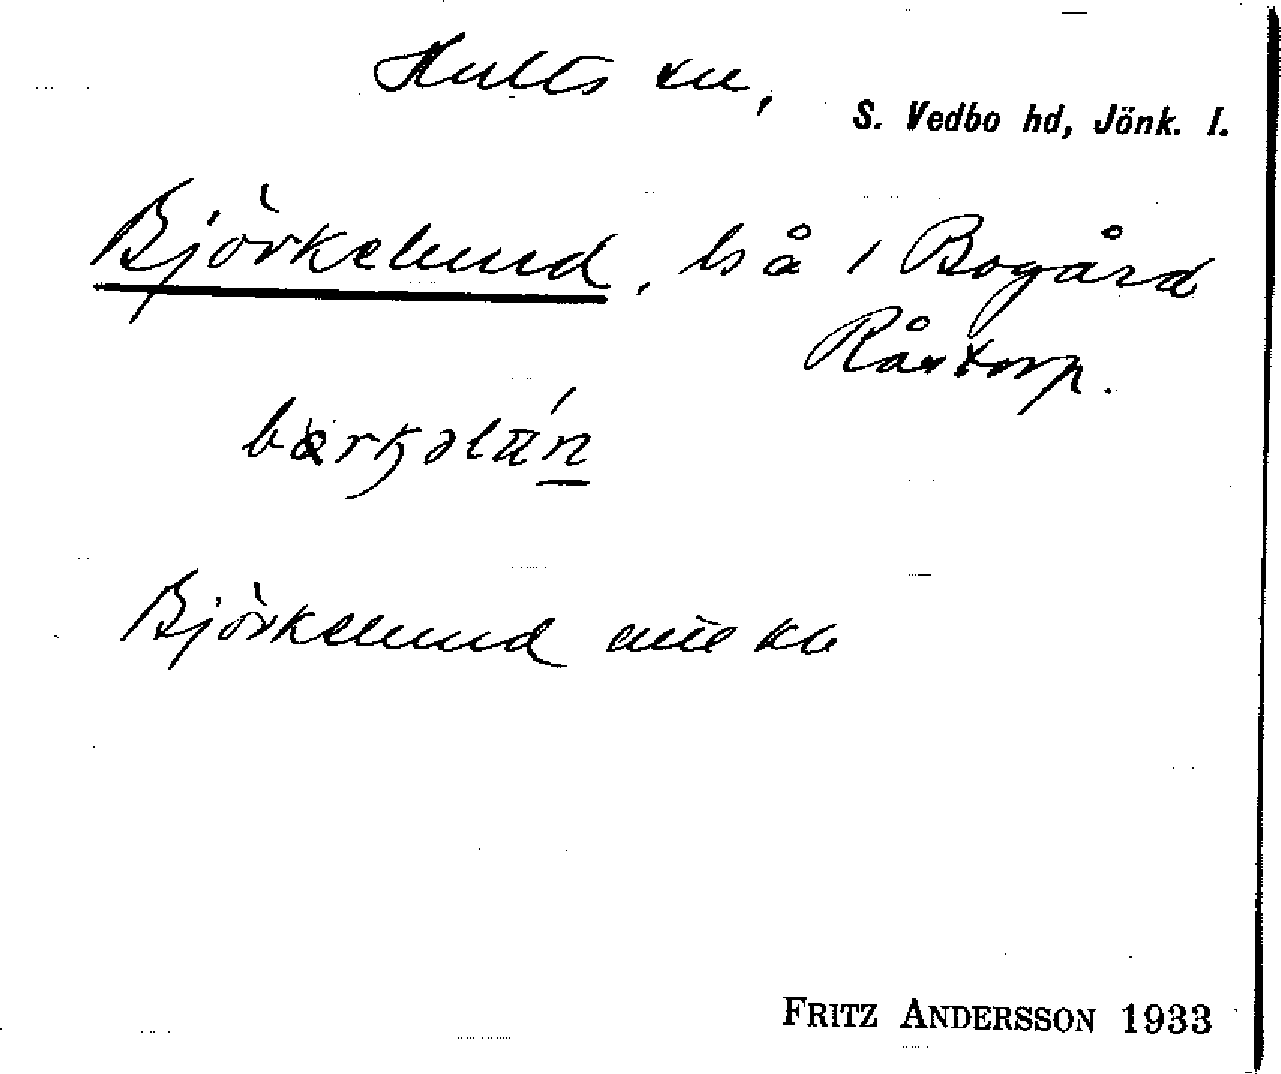 Hults sn,
S. Vedbo hd, Jönk. l.
Björkelund, ls å 1 Bogård
Råstorp.
Björkelund
FRITZ ANDERSSON 1933